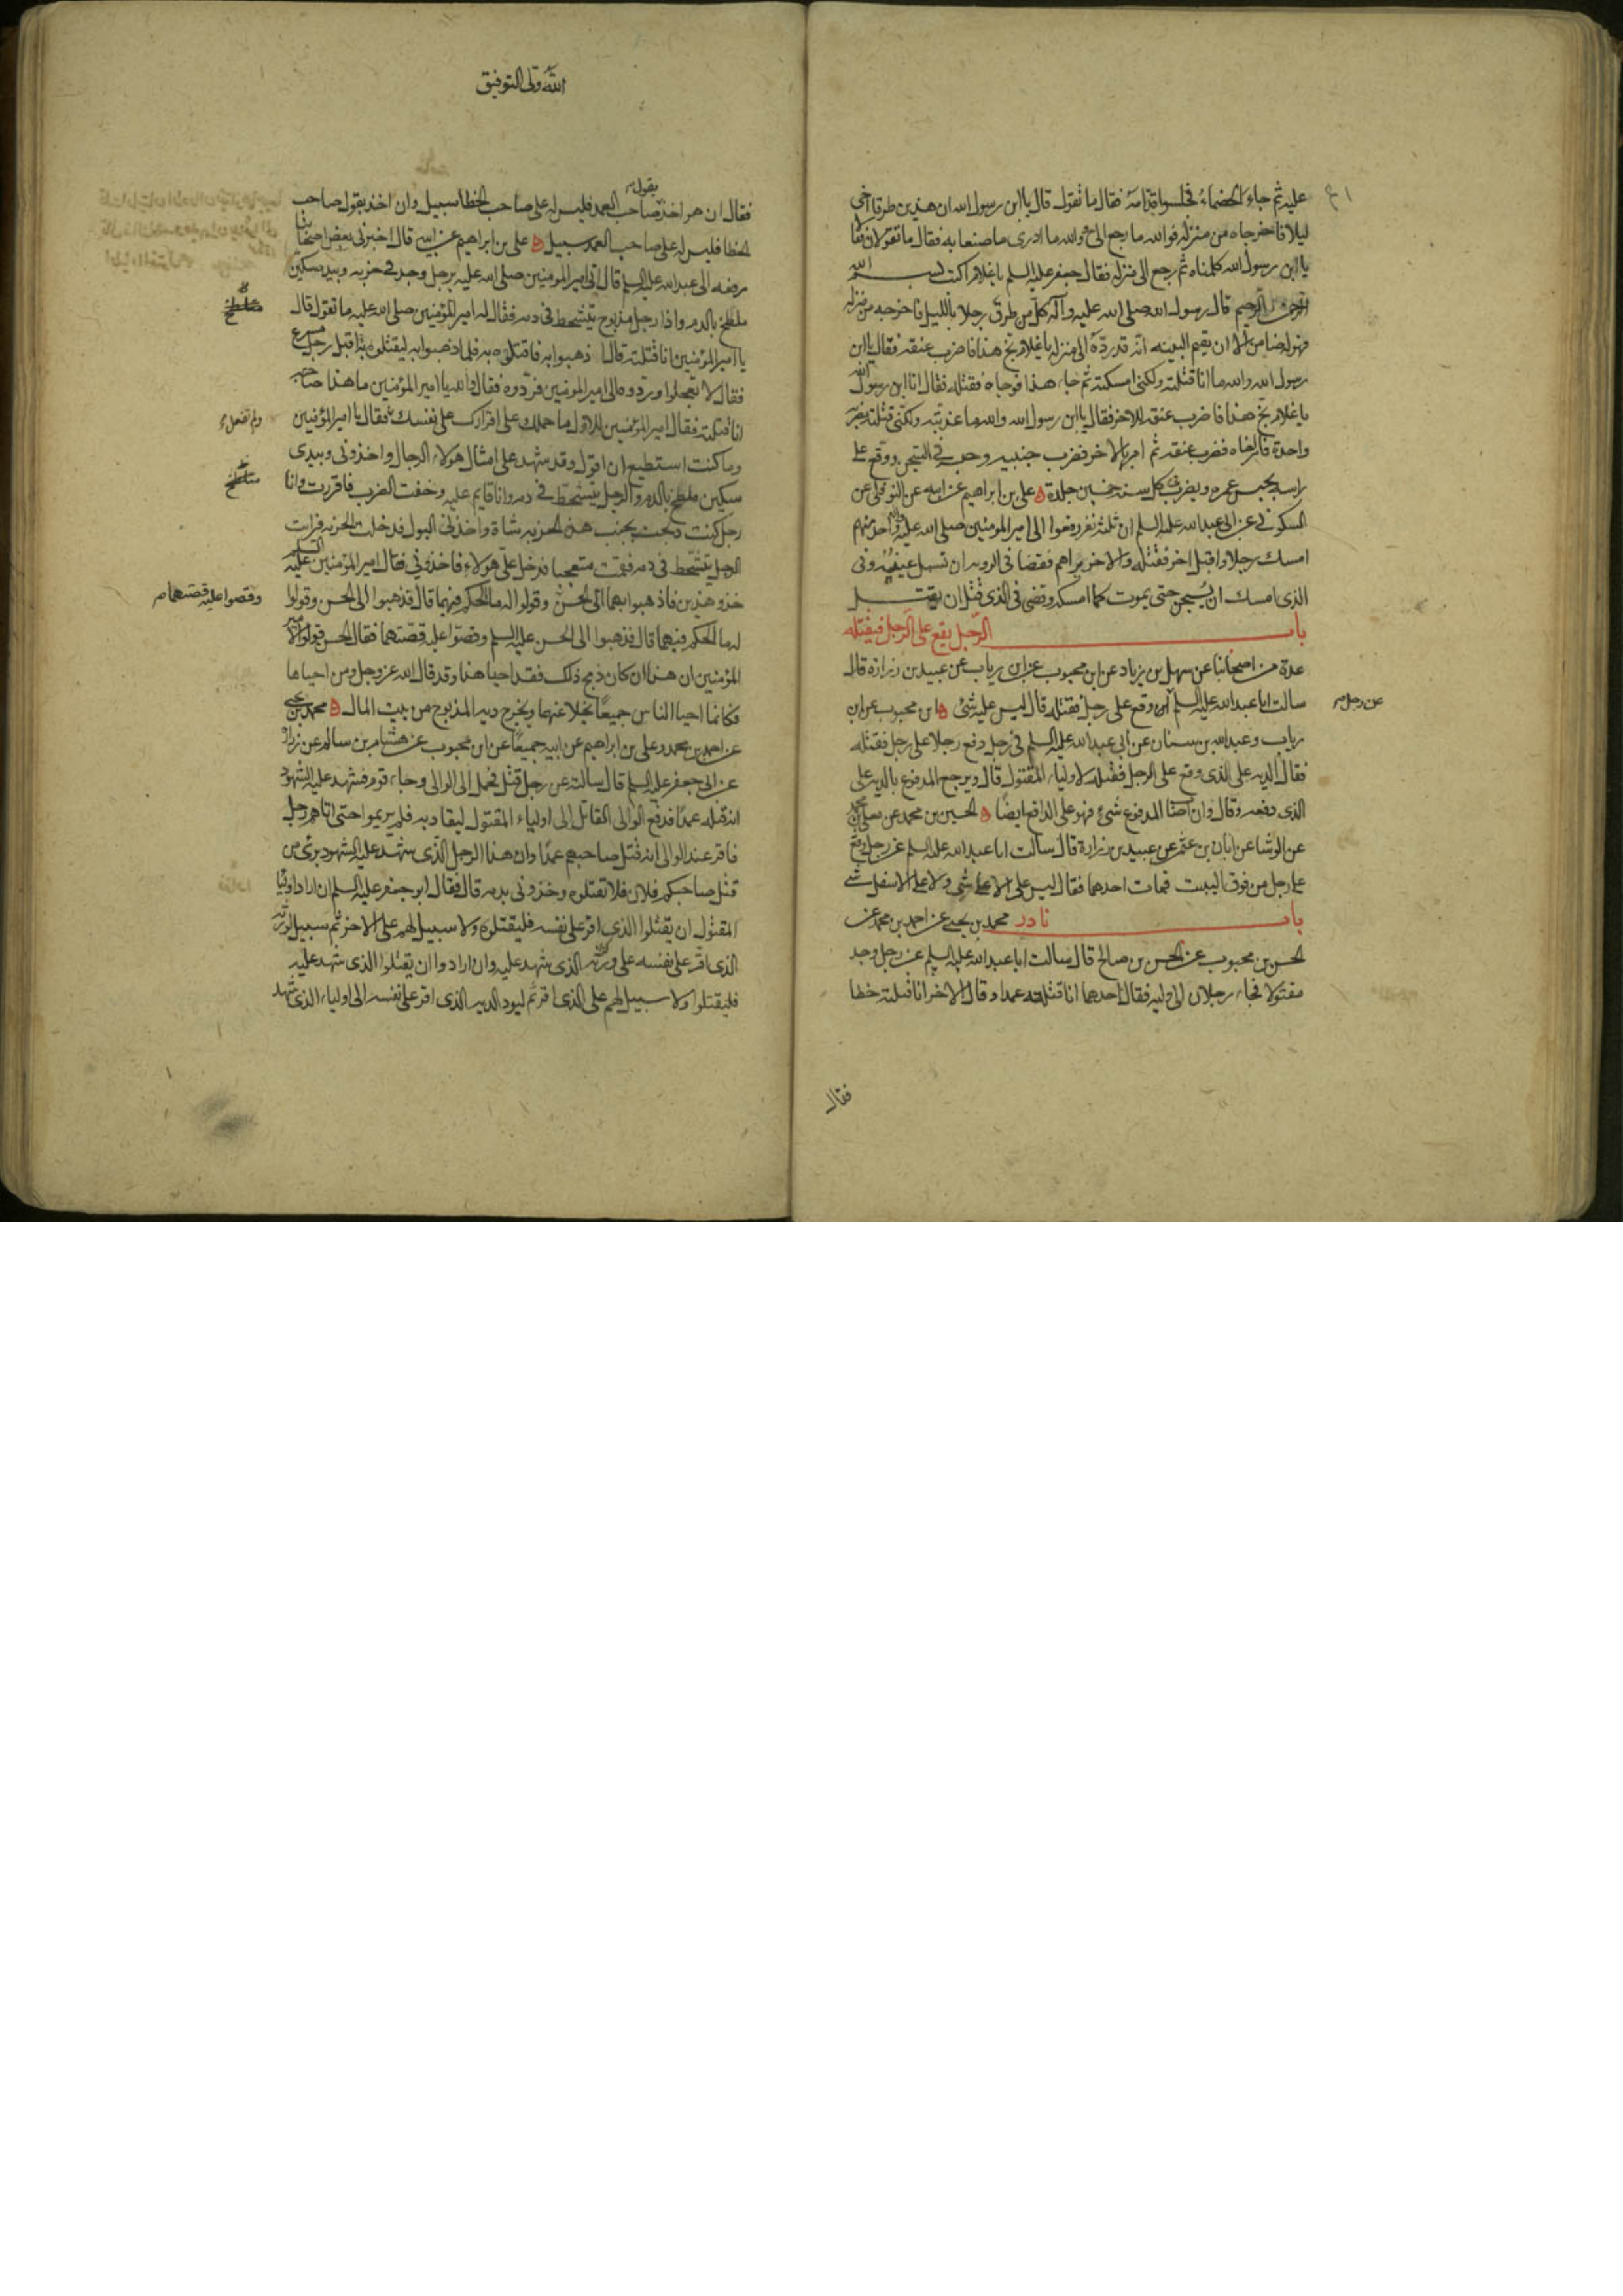 عليه ثم جاء الخصماء فجلسوا قدامه فقال ما تقول قال يا ابن رسول الله ان هذين طرقا اخى
ليلا فاخرجاه من منزله فوالله ما رجع الى ووالله ما ادرى ما صنعا به فقال ما تقولان فقا
يا ابن رسول الله كلمناه ثم رجع الى منزله فقال جعفر عليه السلم يا غلام اكتب بسم الله
الرحمن الرحيم قال رسول الله صلى الله عليه وآله كل من طرق رجلا بالليل فاخرجه من منزله
فهو له ضامن الا ان يقيم البينه انه قد رده الى منزله يا غلام نح هذا فاضرب عنقه فقال يا ابن
رسول الله والله ما انا قتلته ولكنى امسكته ثم جاء هذا فوجاه فقتله فقال انا ابن رسول الله
يا غلام نح هذا فاضرب عنق للاخر فقال يا ابن رسول الله والله ما عذبته ولكنى قتلته بضربه
واحدة فامر اخاه فضرب عنقه ثم امر بالاخر فضرب جنبيه وحبسه فى السجن ووقع على
راسه يحبس عمره ويضرب فى كل سنه خمسين جلدة ه على بن ابراهيم عن ابيه عن النوفلى عن
السكونى عن ابى عبدالله عليه السلم ان ثلثة نفر رفعوا الى امير المومنين صلى الله عليه وآله واحد منهم
امسك رجلا واقبل اخر فقتله والاخر يراهم فقضا فى الرويه ان تسمل عينيه وفى
الذى امسك ان يسجن حتى يموت كما امسكه وقضى فى الذى قتل ان يقتل
باب الرجل يقع على الرجل فيقتله
عدة من اصحابنا عن سهل بن زياد عن ابن محبوب عن ابن رياب عن عبيد بن زرارة قال
سالت ابا عبدالله عليه السلم وقع على رجل فقتله قال ليس عليه شئ ه ابن محبوب عن ابن
عن رجل
رياب وعبدالله بن سنان عن ابى عبدالله عليه السلم فى رجل دفع رجلا على رجل فقتله
فقال الديه على الذى وقع على الرجل فقتله لاولياء المقتول قال ويرجع المدفوع بالديه على
الذى دفعه وقال وان اصاب المدفوع شئ فهو على الدافع ايضا ه الحسين بن محمد عن معلى بن محمد
عن الوشا عن ابان بن عثمن عن عبيد بن زرارة قال سالت ابا عبدالله عليه السلم عن رجل وقع
على رجل من فوق البيت فمات احدهما فقال ليس على الاعلى شى ولا على الاسفل شى
باب نادر محمد بن يحيى عن احمد بن محمد عن
الحسن بن محبوب عن الحسن بن صالح قال سالت ابا عبدالله عليه السلم عن رجل وجد
مقتولا فجاء رجلان الى وليه فقال احدهما انا قتلته عمدا وقال الاخر انا قتلته خطا
فقال
الله ولى التوفيق
فقال ان هو اخذ بقول صاحب العمد فليس له على صاحب الخطا سبيل وان اخذ بقول صاحب
الخطا فليس له على صاحب العمد سبيل ه على بن ابراهيم عن ابيه قال اخبرنى بعض اصحابنا
رفعه الى عبدالله عليه السلم قال اتى امير المومنين صلى الله عليه برجل وجد فى خربه وبيده سكين
ملطخ بالدم واذا رجل مذبوح يتشحط فى دمه فقال له امير المؤمنين صلى الله عليه ما تقول قال
يا امير المؤمنين انا قتلته قال اذهبوا به فاقتلوه به فلما ذهبوا به ليقتلوه به اقبل رجل مسرع
فقال لا تعجلوا وردوه الى امير المومنين فردوه فقال والله يا امير المؤمنين ما هذا صاحبه
انا قتلته فقال امير المؤمنين للاول ما حملك على اقرارك على نفسك فقال يا امير المؤمنين
ولم تفعل
وما كنت استطيع ان اقول وقد شهد على امثال هولاء الرجال واخذونى وبيدى
سكين ملطخ بالدم والرجل يتشحط فى دمه وانا قايم عليه وخفت الضرب فاقررت وانا
رجل كنت ذبحت بجنب هذه الخربه شاة واخذنى البول فدخلت الخربه فرايت
الرجل يتشحط فى دمه فقمت متعجبا فدخل على هولاء فاخذونى فقال امير المؤمنين عليه السلم
خذوا هذين فاذهبوا بهما الى الحسن وقولوا له ما الحكم فيهما قال فذهبوا الى الحسن وقولوا
وقصوا عليه قصتهما
له ما الحكم فيهما قال فذهبوا الى الحسن عليه السلم وقصوا عليه قصتهما فقال الحسن قولوا لامير
المؤمنين ان هذا ان كان ذبح ذلك فقد احيا هذا وقد قال الله عز وجل ومن احياها
فكانما احيا الناس جميعا يخلا عنهما ويخرج ديه المذبوح من بيت المال ه محمد بن يحيى
عن احمد بن محمد وعلى بن ابراهيم عن ابيه جميعا عن ابن محبوب عن هشام بن سالم عن زرارة
عن ابى جعفر عليه السلم قال سالته عن رجل قتل فحمل الى الوالى وجاء قوم فشهد عليه الشهود
انه قتله عمدا فدفع الوالى القاتل الى اولياء المقتول ليقاد به فلم يريموا حتى اتاهم رجل
فاقر عند الوالى انه قتل صاحبهم عمدا وان هذا الرجل الذى شهد عليه الشهود برئ من
قتل صاحبكم فلان فلا تقتلوه وخذونى بدمه قال فقال ابو جعفر عليه السلم ان اراد اوليا
المقتول ان يقتلوا الذى اقر على نفسه فليقتلوه ولا سبيل لهم على الاخر ثم لا سبيل لورثه
الذى اقر على نفسه على ورثه الذى شهد عليه وان ارادوا ان يقتلوا الذى شهد عليه
فليقتلوا ولا سبيل لهم على الذى اقر ثم ليود الديه الذى اقر على نفسه الى اولياء الذى شهد